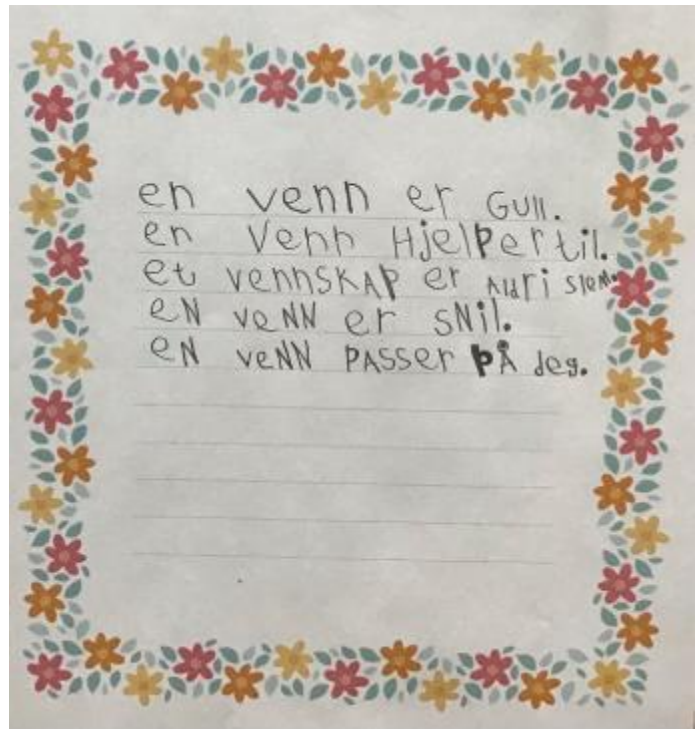 en venn er Gull.
en Venn Hjelper til.
et vennSKAP er Aldri slem.
eN veNN er sNil.
eN veNN PASSer PÅ deg.